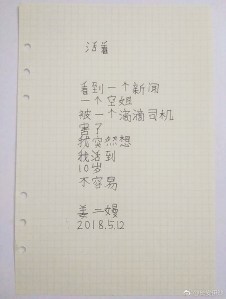 活着
看到一个新闻
一个空姐
被一个滴滴司机
害了
我突然想
我活到
10岁
不容易
姜二嫚
2018.5.12